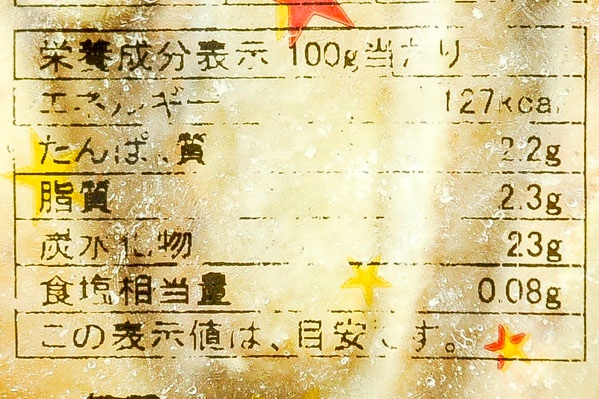 栄養成分表示 100g当たり
エネルギー 127kcal
たんぱく質 2.2g
脂質 2.3g
炭水化物 23g
食塩相当量 0.08g
この表示値は、目安です。